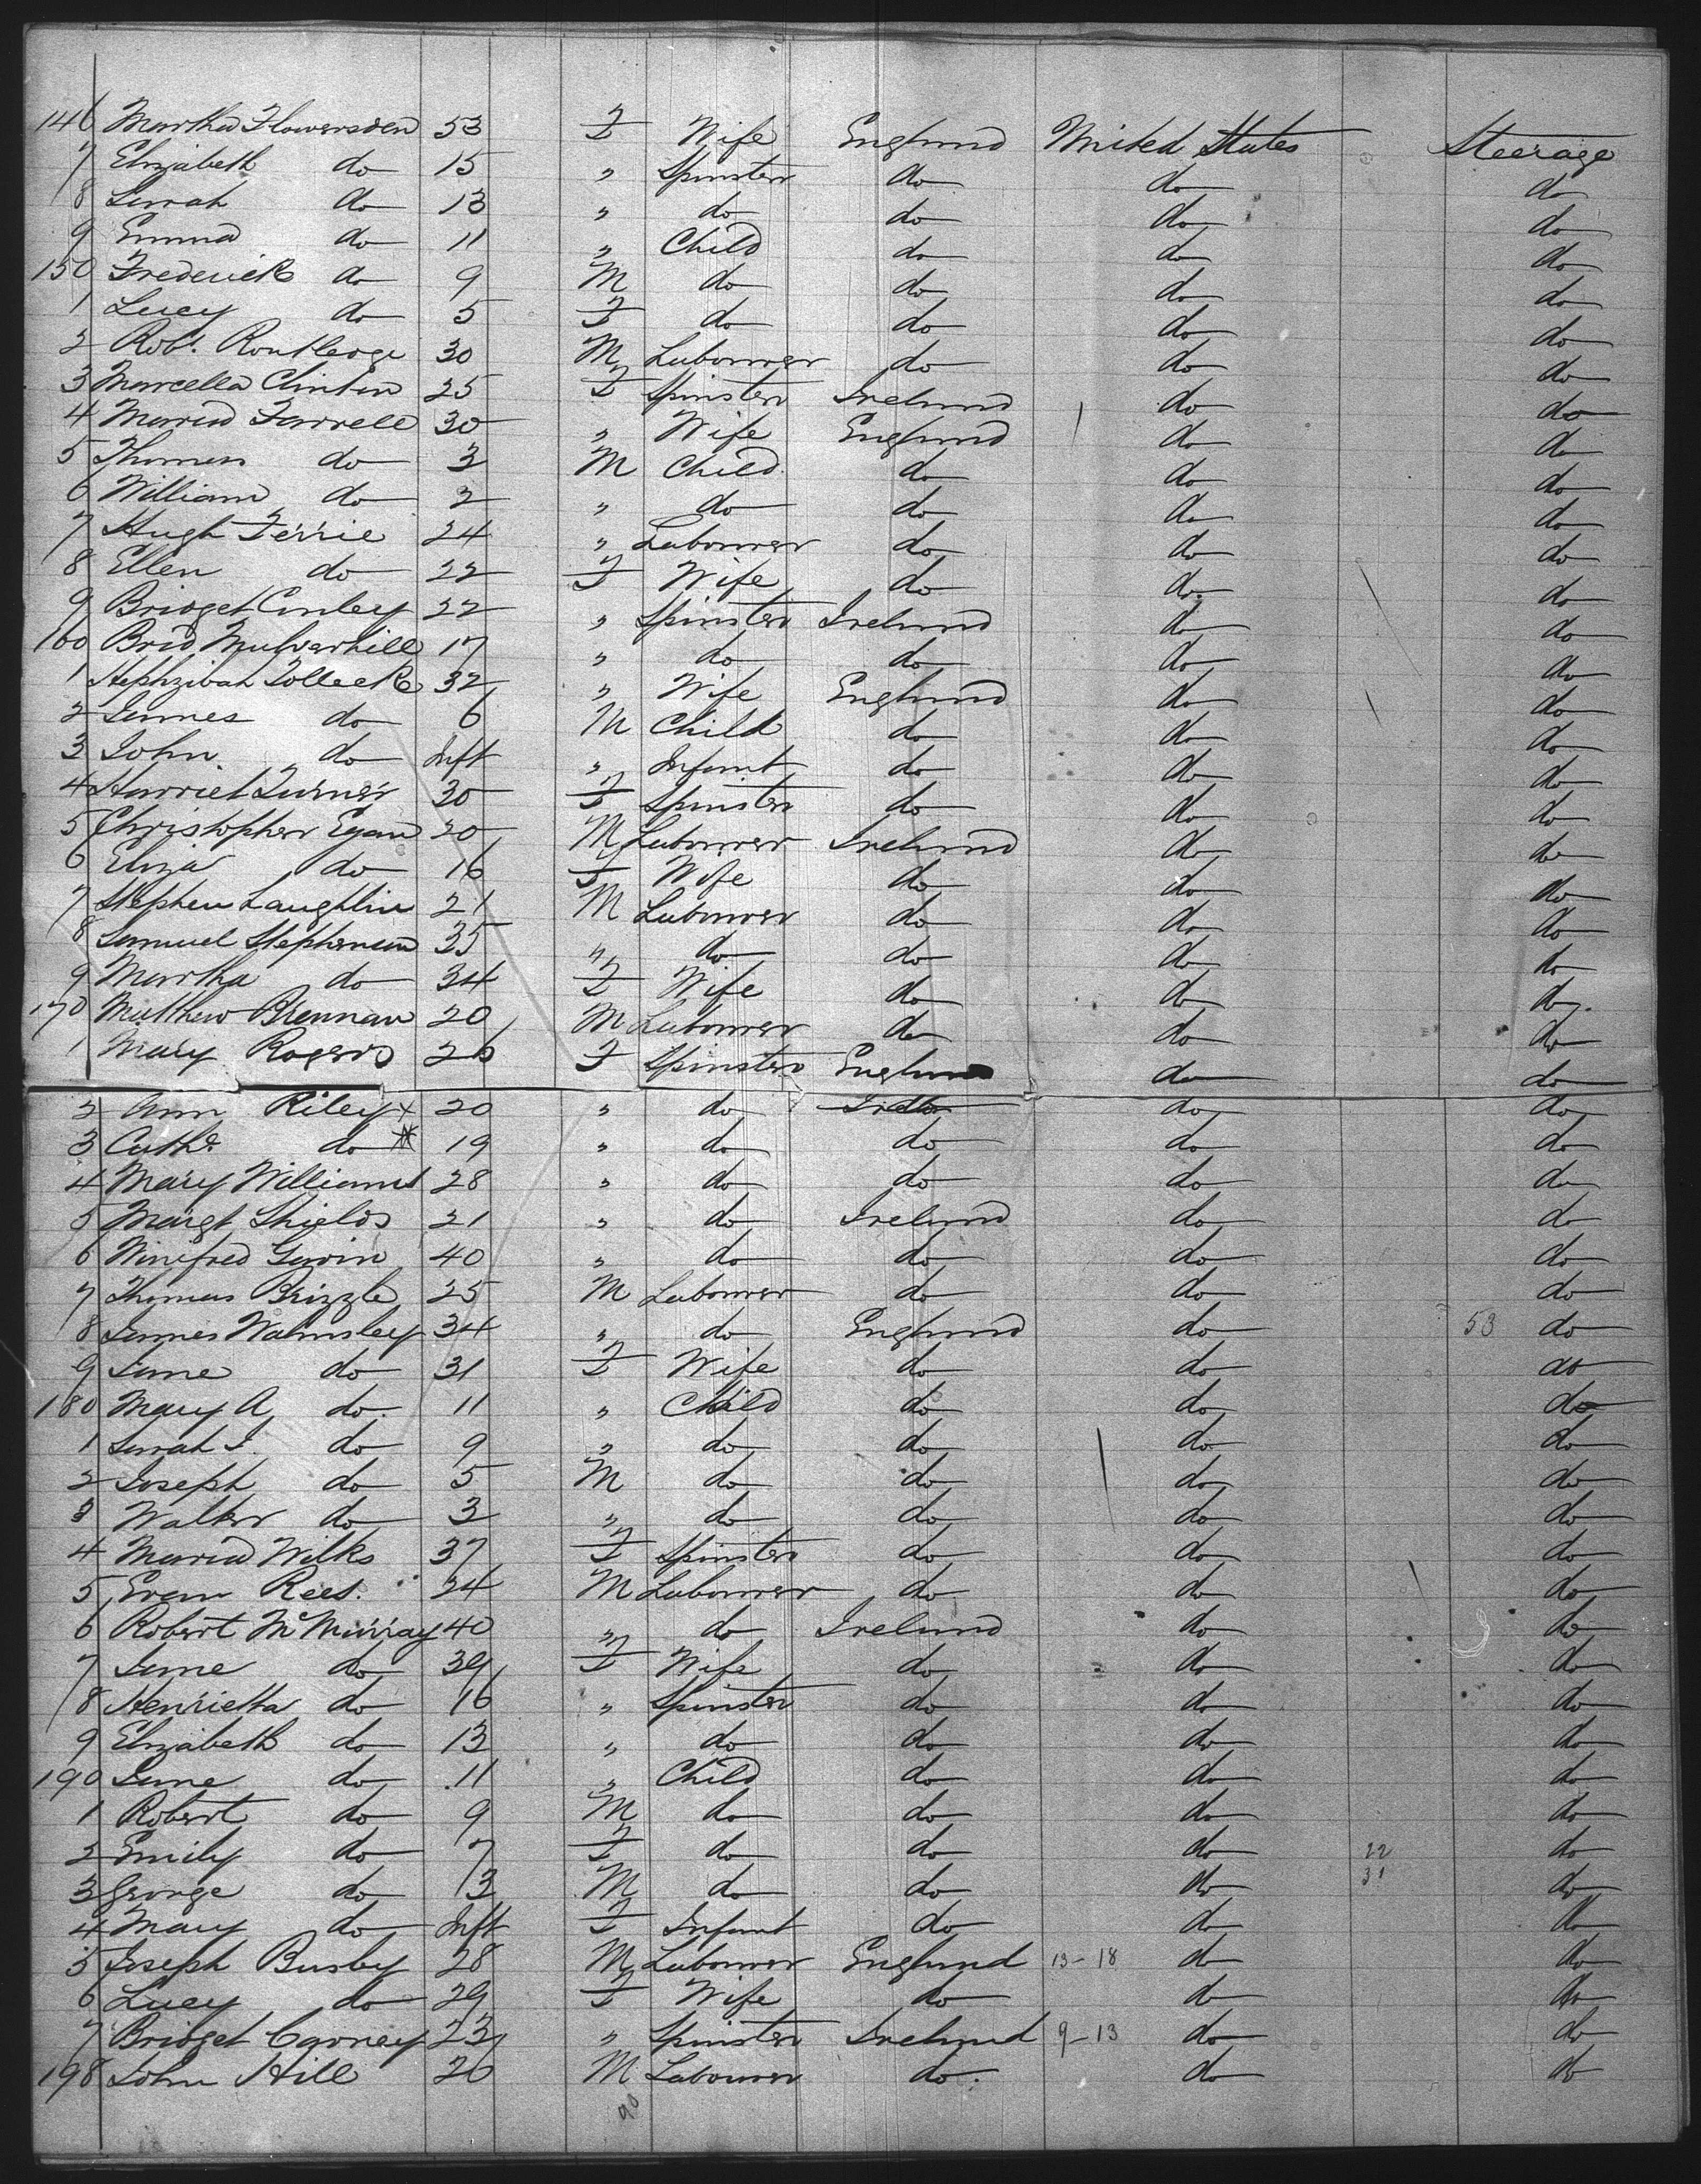 146 Martha Flowersden 53 F Wife England United States Steerage
7 Elizabeth do 15 " Spinster do do do
8 Sarah do 13 " do do do do
9 Emma do 11 " Child do do do
150 Frederick do 9 M do do do do
1 Lucy do 5 F do do do do
2 Robt. Routledge 30 M Labourer do do do
3 Marcella Clinton 25 F Spinster Ireland do do
4 Maria Farrell 30 " Wife England do do
5 Thomas do 3 M Child do do do
6 William do 2 " do do do do
7 Hugh Ferrie 24 " Labourer do do do
8 Ellen do 22 F Wife do do do
9 Bridget Conley 22 " Spinster Ireland do do
160 Brid Mulvarhill 17 " do do do do
1 Hephzibah 32 " Wife England do do
2 James do 6 M Child do do do
3 John do Inft " Infant do do do
4 Harriet Turner 30 F Spinster do do do
5 Christopher Egan 20 M Labourer Ireland do do
6 Eliza do 16 F Wife do do do
7 Stephen Laughlin 21 M Labourer do do do
8 Samuel Stephenson 35 " do do do do
9 Martha do 34 F Wife do do do
170 Matthew Brennan 20 M Labourer do do do
1 Mary Rogers 26 F Spinster England do do
2 Ann Riley x 20 " do do do
3 Cathe do 19 " do do do do
4 Mary Williams 28 " do do do do
5 Margt Shields 21 " do Ireland do do
6 Winifred Gavin 40 " do do do do
7 Thomas Brizzle 25 M Labourer do do do
8 James Walmsley 34 " do England do 53 do
9 Jane do 31 F Wife do do do
180 Mary A do 11 " Child do do do
1 Sarah J. do 9 " do do do do
2 Joseph do 5 M do do do do
3 Walter do 3 " do do do do
4 Maria Wilks 37 F Spinster do do do
5 Evan Rees. 24 M Labourer do do do
6 Robert McMurray 40 " do Ireland do do
7 Jane do 39 F Wife do do do
8 Henrietta do 16 " Spinster do do do
9 Elizabeth do 13 " do do do do
190 Jane do 11 " Child do do do
1 Robert do 9 M do do do do
2 Emily do 7 F do do do 22 do
3 George do 3 M do do do 31 do
4 Mary do Inft F Infant do do do
5 Joseph Busby 28 M Labourer England 13-18 do do
6 Lucy do 29 F Wife do do do
7 Bridget Carney 23 " Spinster Ireland 9-13 do do
198 John Hill 20 M Labourer do do do
90